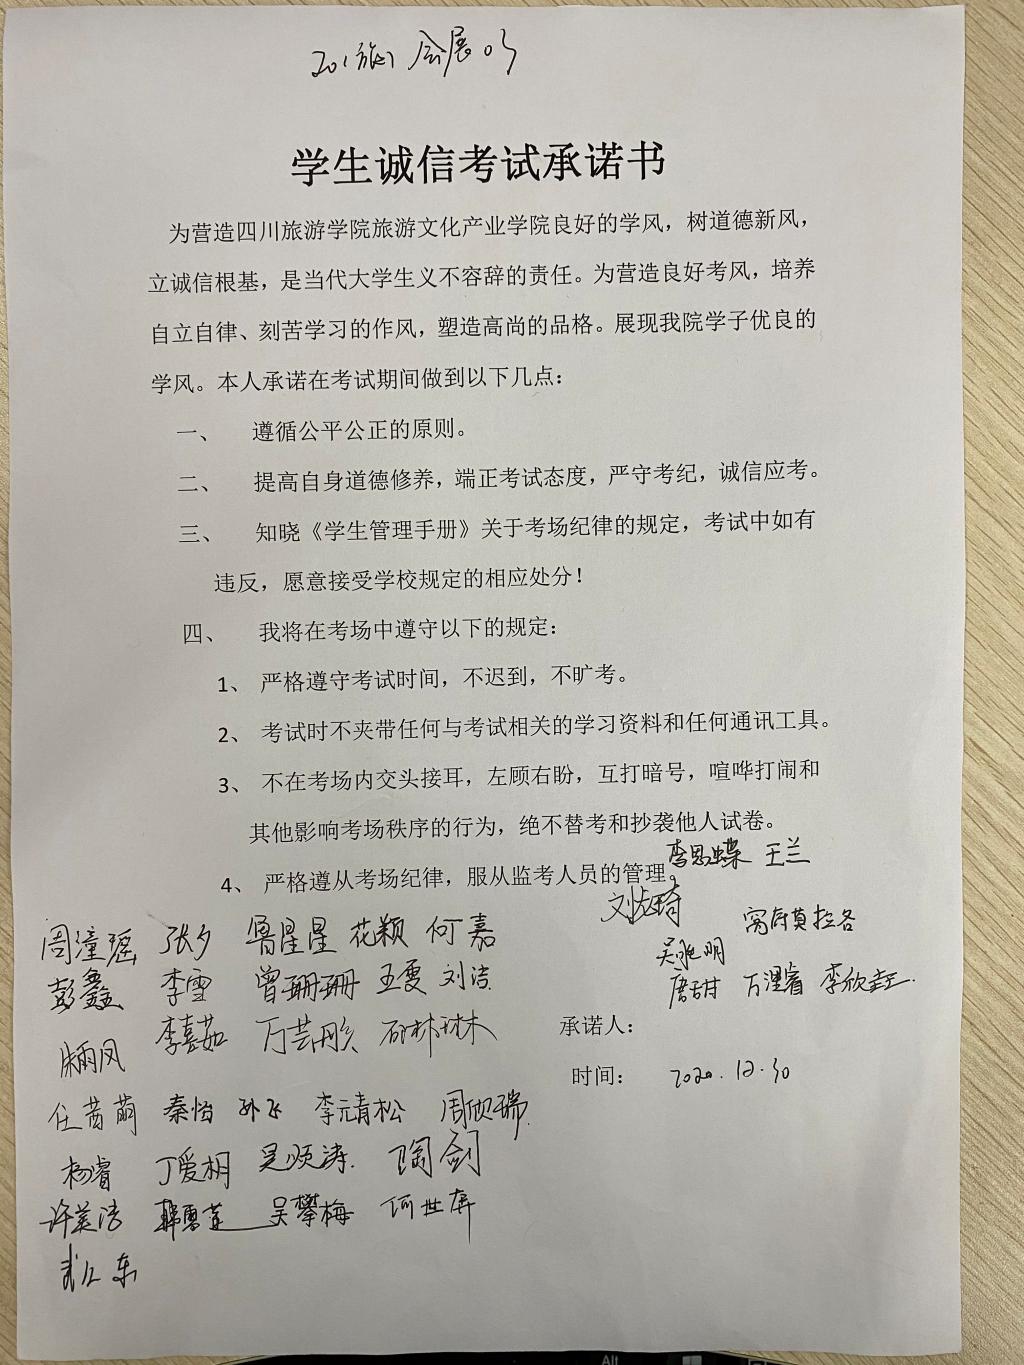 会展03
学生诚信考试承诺书
为营造四川旅游学院旅游文化产业学院良好的学风，树道德新风，
立诚信根基，是当代大学生义不容辞的责任。为营造良好考风，培养
自立自律、刻苦学习的作风，塑造高尚的品格。展现我院学子优良的
学风。本人承诺在考试期间做到以下几点：
一、 遵循公平公正的原则。
二、 提高自身道德修养，端正考试态度，严守考纪，诚信应考。
三、 知晓《学生管理手册》关于考场纪律的规定，考试中如有
违反，愿意接受学校规定的相应处分！
四、 我将在考场中遵守以下的规定：
1、 严格遵守考试时间，不迟到，不旷考。
2、 考试时不夹带任何与考试相关的学习资料和任何通讯工具。
3、 不在考场内交头接耳，左顾右盼，互打暗号，喧哗打闹和
其他影响考场秩序的行为，绝不替考和抄袭他人试卷。
4、 严格遵从考场纪律，服从监考人员的管理。
李思蝶 王兰
周潼瑶 张夕 鲁星星 花颖 何嘉
彭鑫 李雪 曾珊珊 王雯 刘洁
唐甜 万浬睿
朱雨凤 李嘉茹
承诺人：
时间： 2020.12.30
任茜萌 秦怡 孙飞 李元青松 周欣瑞
杨睿 丁爱桐 吴顺涛 陶剑
许美洁 吴攀梅 何世屏
Alt